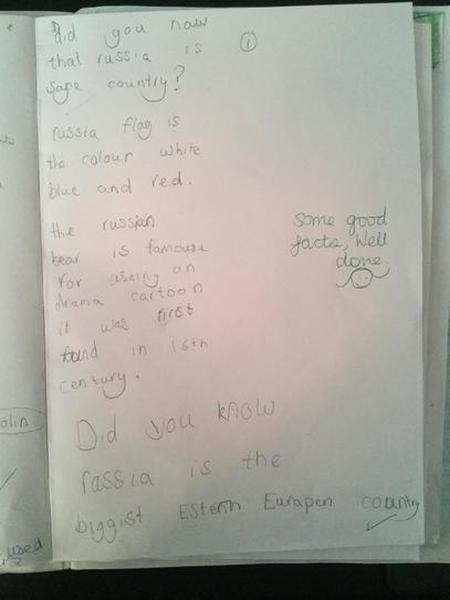 did you now
that russia is ①
safe country?
russia flag is
the colour white
blue and red.
the russian
bear is famouse
for useing on
drama cartoon
it was first
found in 16th
century.
Some good
facts, Well
done.
Did you know
rassia is the
biggist Estern Eurapen country
olin
used